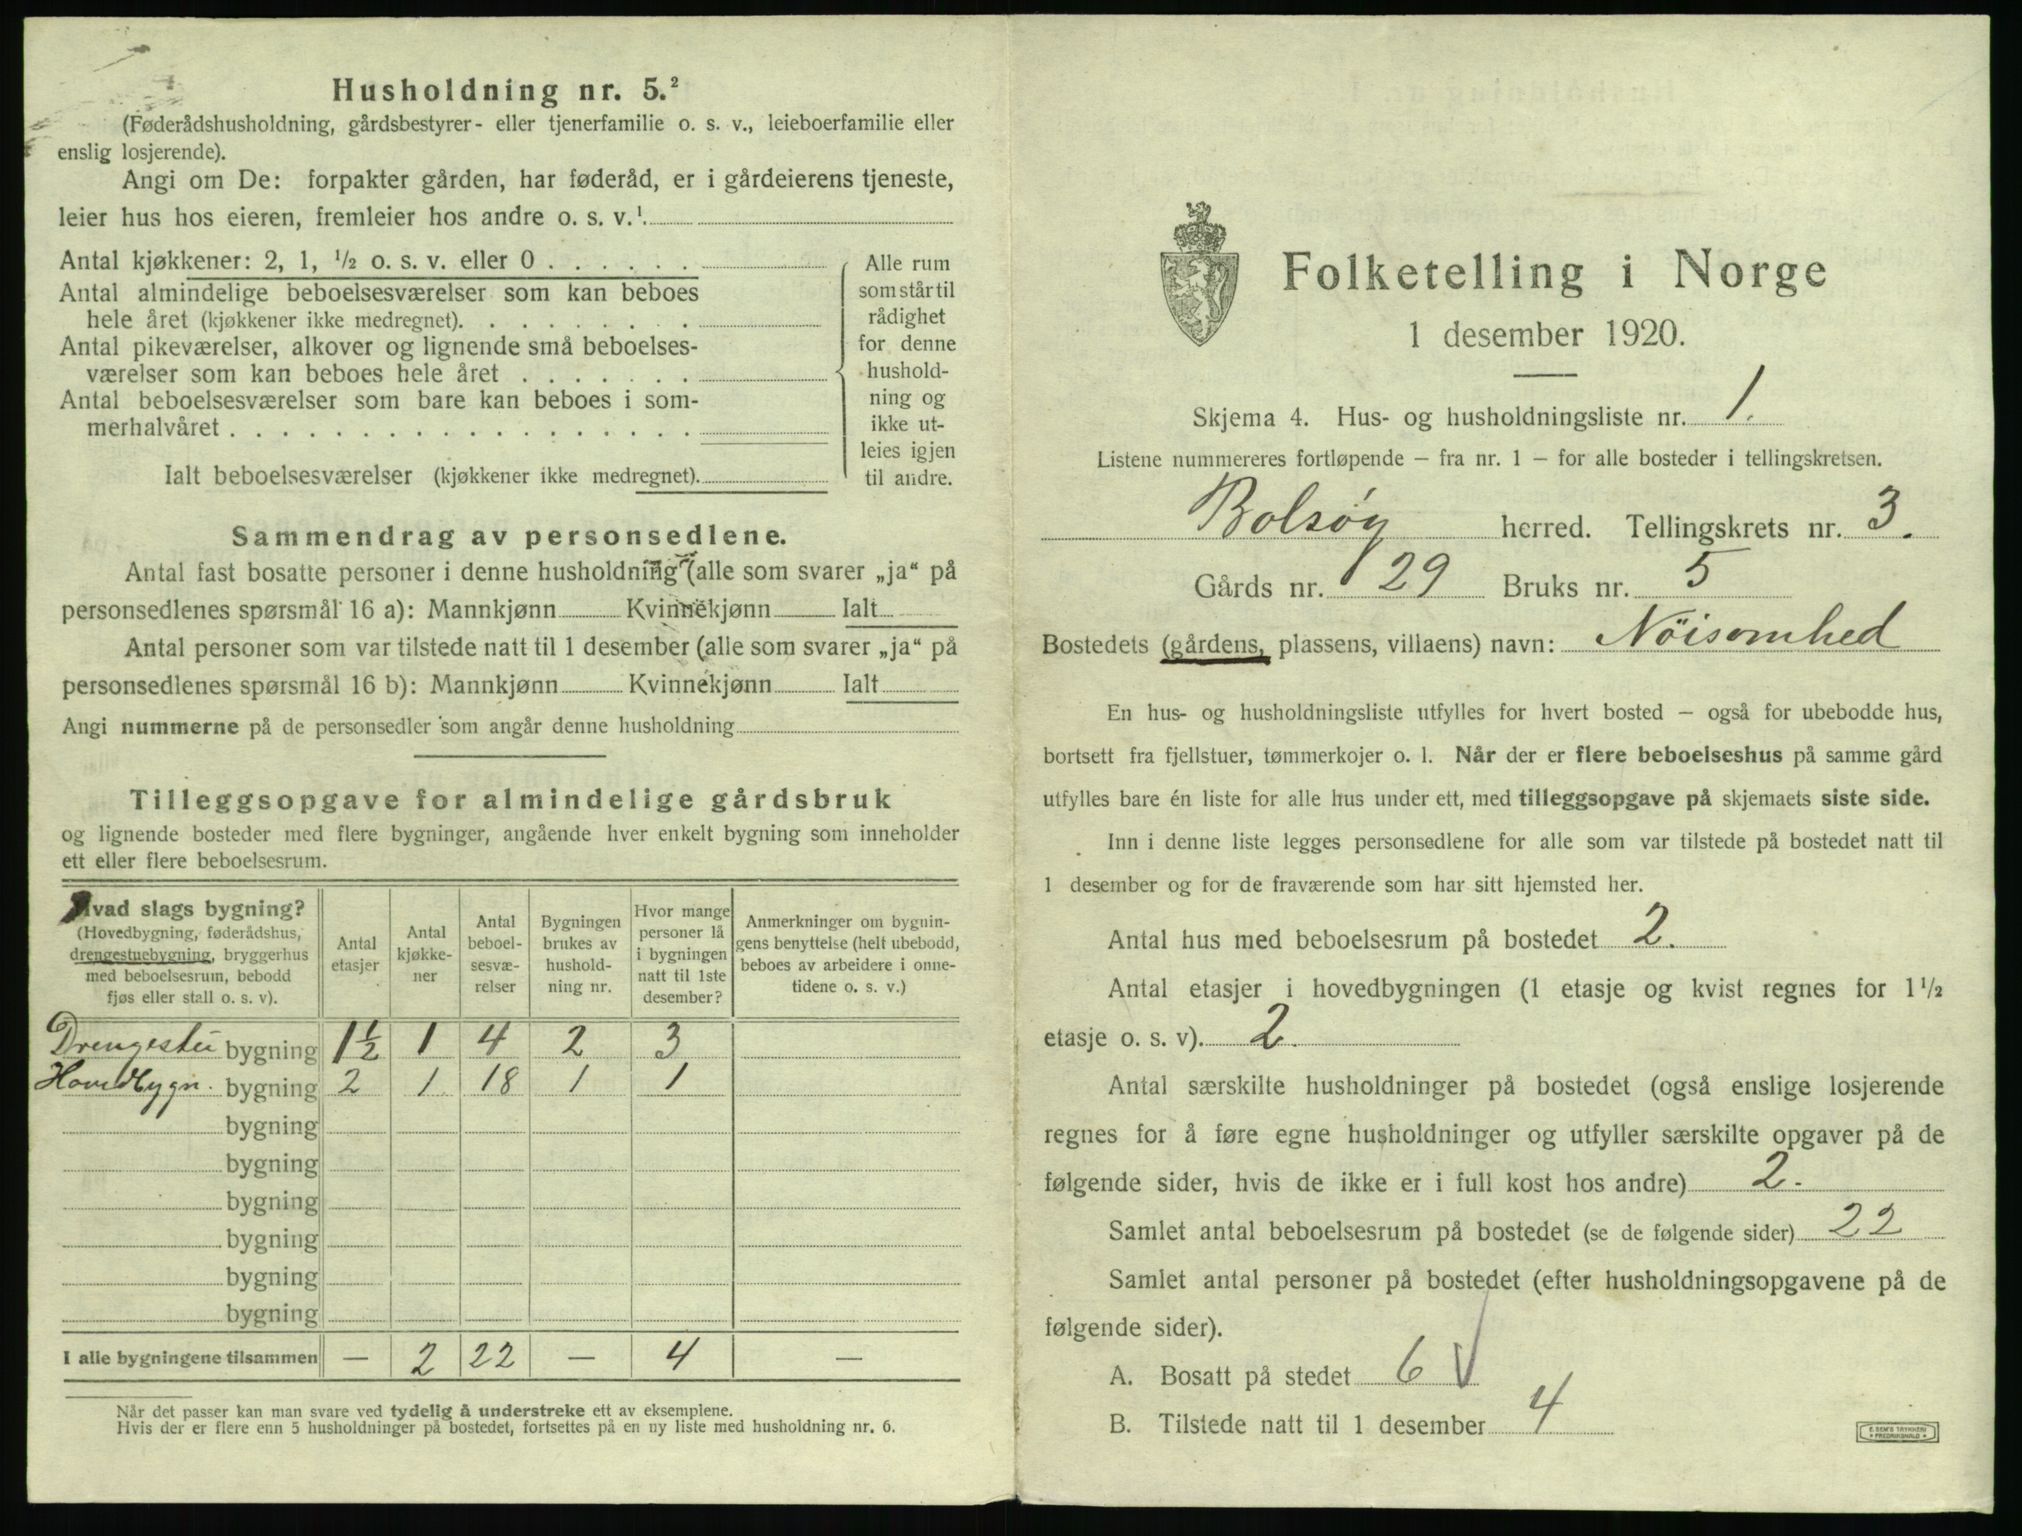 Husholdning nr. 5.²
(Føderådshusholdning, gårdsbestyrer- eller tjenerfamilie o. s. v., leieboerfamilie eller
enslig losjerende).
Angi om De: forpakter gården, har føderåd, er i gårdeierens tjeneste,
leier hus hos eieren, fremleier hos andre o. s. v.¹
Antal kjøkkener: 2, 1, ½ o. s. v. eller 0 . . . . . .
Antal almindelige beboelsesværelser som kan beboes
hele året (kjøkkener ikke medregnet). . . . . . . . .
Antal pikeværelser, alkover og lignende små beboelses-
værelser som kan beboes hele året . . . . . . .
Antal beboelsesværelser som bare kan beboes i som-
merhalvåret . . . . . . . . . . . . . . . . . .
Ialt beboelsesværelser (kjøkkener ikke medregnet).
Alle rum
som står til
rådighet
for denne
hushold-
ning og
ikke ut-
leies igjen
til andre.
Sammendrag av personsedlene.
Antal fast bosatte personer i denne husholdning (alle som svarer „ja“ på
personsedlenes spørsmål 16 a): Mannkjønn Kvinnekjønn Ialt
Antal personer som var tilstede natt til 1 desember (alle som svarer „ja“ på
personsedlenes spørsmål 16 b): Mannkjønn Kvinnekjønn Ialt
Angi nummerne på de personsedler som angår denne husholdning
Tilleggsopgave for almindelige gårdsbruk
og lignende bosteder med flere bygninger, angående hver enkelt bygning som inneholder
ett eller flere beboelsesrum.
Hvad slags bygning?
(Hovedbygning, føderådshus,
drengestuebygning, bryggerhus
med beboelsesrum, bebodd
fjøs eller stall o. s. v).
Antal
etasjer
Antal
kjøkke-
ner
Antal
beboel-
sesvæ-
relser
Bygningen
brukes av
hushold-
ning nr.
Hvor mange
personer lå
i bygningen
natt til 1ste
desember?
Anmerkninger om bygnin-
gens benyttelse (helt ubebodd,
beboes av arbeidere i onne-
tidene o. s. v.)
Drengestu bygning 1½ 1 4 2 3
Hovedbygn. bygning 2 1 18 1 1
bygning
bygning
bygning
bygning
bygning
bygning
I alle bygningene tilsammen — 2 22 — 4 —
Når det passer kan man svare ved tydelig å understreke ett av eksemplene.
Hvis der er flere enn 5 husholdninger på bostedet, fortsettes på en ny liste med husholdning nr. 6.
Folketelling i Norge
1 desember 1920.
Skjema 4. Hus- og husholdningsliste nr. 1.
Listene nummereres fortløpende — fra nr. 1 — for alle bosteder i tellingskretsen.
Bolsøy herred. Tellingskrets nr. 3.
Gårds nr. 29 Bruks nr. 5
Bostedets (gårdens, plassens, villaens) navn: Nöisomhed
En hus- og husholdningsliste utfylles for hvert bosted — også for ubebodde hus,
bortsett fra fjellstuer, tømmerkojer o. l. Når der er flere beboelseshus på samme gård
utfylles bare én liste for alle hus under ett, med tilleggsopgave på skjemaets siste side.
Inn i denne liste legges personsedlene for alle som var tilstede på bostedet natt til
1 desember og for de fraværende som har sitt hjemsted her.
Antal hus med beboelsesrum på bostedet 2.
Antal etasjer i hovedbygningen (1 etasje og kvist regnes for 1½
etasje o. s. v). 2.
Antal særskilte husholdninger på bostedet (også enslige losjerende
regnes for å føre egne husholdninger og utfyller særskilte opgaver på de
følgende sider, hvis de ikke er i full kost hos andre) 2.
Samlet antal beboelsesrum på bostedet (se de følgende sider) 22
Samlet antal personer på bostedet (efter husholdningsopgavene på de
følgende sider).
A. Bosatt på stedet 6 √
B. Tilstede natt til 1 desember 4
E. SEM'S TRYKKERI
* FREDRIKSHALD *